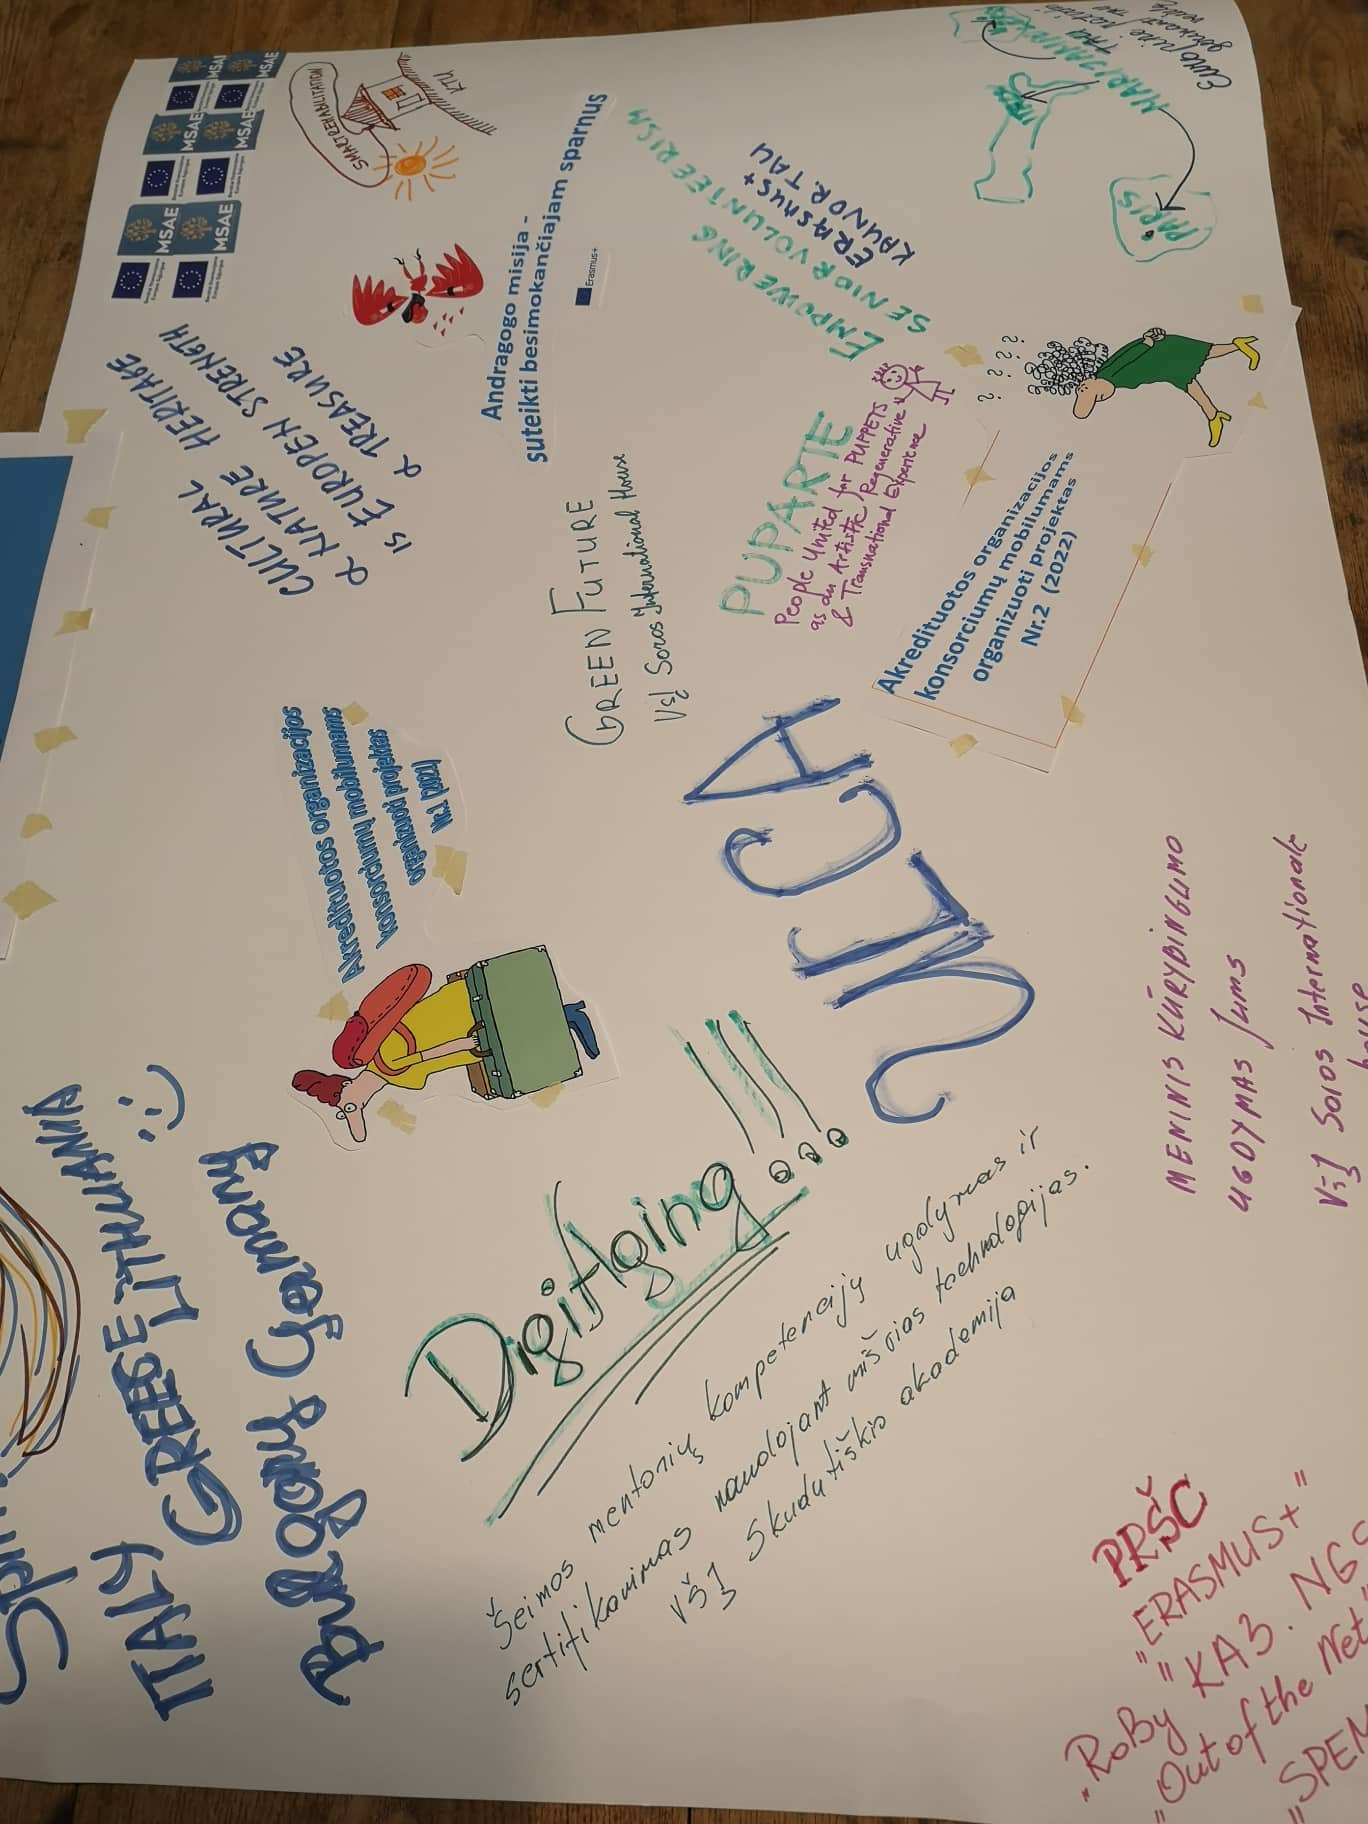 MSAE
MSAE
MSAE
MSAE
MSAE
MSAE
SMARTREHABILITATION
KTU
Andragogo misija -
suteikti besimokančiajam sparnus
Erasmus+
EMPOWERING
SENIOR VOLUNTEERISM
ERASMUS+
KAUNO R. TAU
MARIJAMPOLĖ
PARIS
CULTURAL HERITAGE
& NATURE
IS EUROPEN STRENGTH
& TREASURE
GREEN FUTURE
VšĮ Soros International House
PUPARTE
People United for PUPPETS
as an Artistic Regenerative
& Transnational Experience
Akredituotos organizacijos
konsorciumų mobilumams
organizuoti projektas
Nr.2 (2022)
Akredituotos organizacijos
konsorciumų mobilumams
organizuoti projektas
Nr.1 (2021)
MENINIS KŪRYBINGUMO
UGDYMAS Jums
VšĮ Soros Internationale
house
ITALY GREECE LITHUANIA :)
Germany
DigitAging!!!
Šeimos mentorių kompetencijų ugdymas ir
sertifikavimas naudojant mišrias technologijas.
VšĮ Skudutiškio akademija
PRŠC
"ERASMUS+"
"RoBy" KA3. NGS
"Out of the Net"